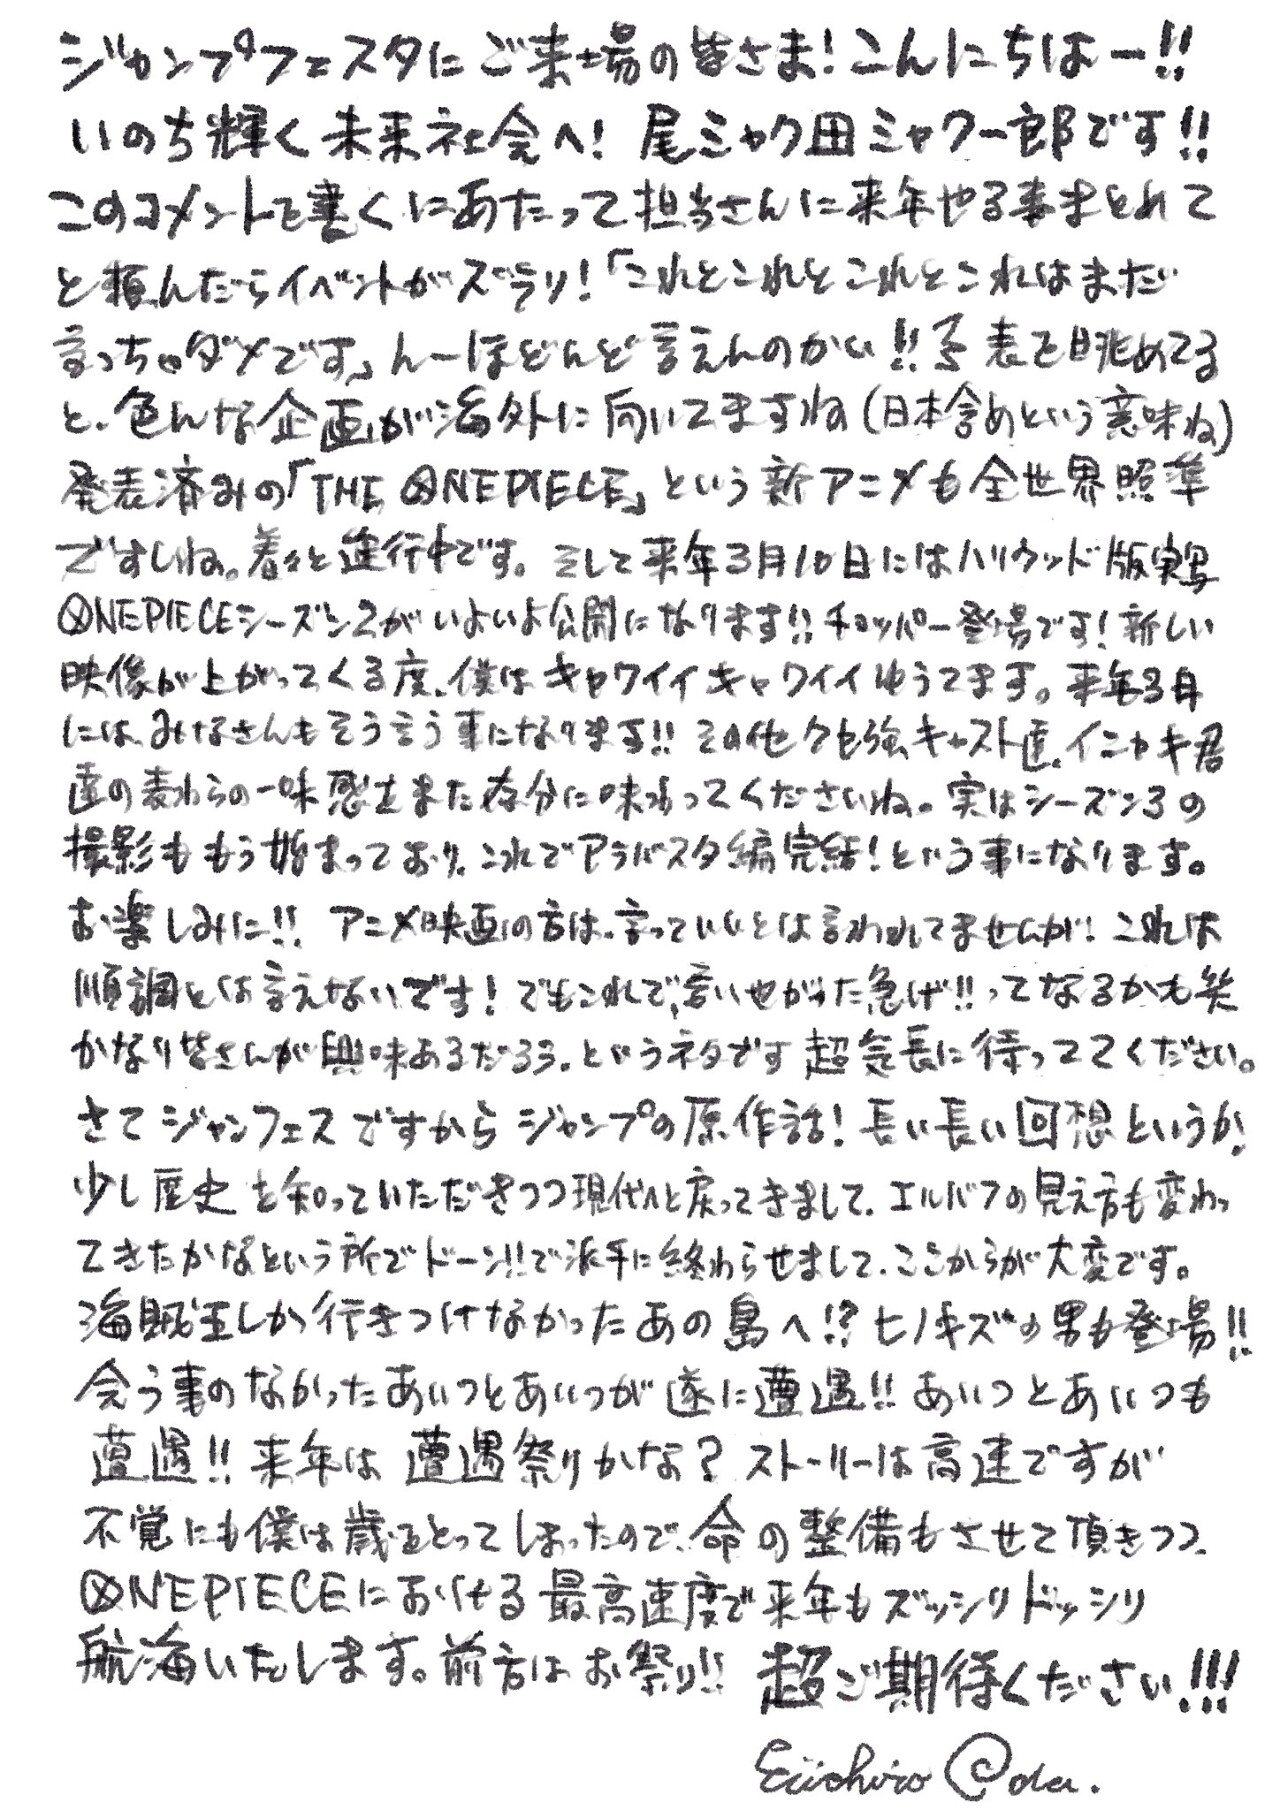 ジャンプフェスタにご来場の皆さま!こんにちはー!!
いのち輝く未来社会へ! 尾ミャク田ミャク一郎です!!
このコメントを書くにあたって担当さんに来年やる事まとめて
と頼んだらイベントがズラリ!「これとこれとこれとこれはまだ
言っちゃダメです」んーほどんど言えんのかい!!予表を眺めてる
と、色んな企画が海外に向いてますね(日本含めという意味ね)
発表済みの「THE ONE PIECE」という新アニメも全世界照準
ですしね。着々と進行中です。そして来年3月10日にはハリウッド版実写
ONE PIECEシーズン2がいよいよ公開になります!!チョッパー登場です!新しい
映像が上がってくる度、僕はキャワイイキャワイイゆうてます。来年3月
には、みなさんもそう言う事になります!!その他クセ強キャスト達、イニャキ君
達の麦わらの一味感をまた存分に味わってくださいね。実はシーズン3の
撮影ももう始まっており、これでアラバスタ編完結!という事になります。
お楽しみに!! アニメ映画の方は、言っていいとは言われてませんが!これは
順調とは言えないです!でもこれで、言いやがった急げ!!ってなるかも笑
かなり皆さんが興味あるだろう、というネタです超気長に待っててください。
さてジャンフェスですからジャンプの原作話!長い長い回想というか、
少し歴史を知っていただきつつ現代へと戻ってきまして、エルバフの見え方も変わっ
てきたかなという所でドーン!!で派手に終わらせまして、ここからが大変です。
海賊王しか行きつけなかったあの島へ!?ヒノキズの男も登場!!
会う事のなかったあいつとあいつが遂に遭遇!!あいつとあいつも
遭遇!!来年は遭遇祭りかな?ストーリーは高速ですが
不覚にも僕は歳をとってしまったので、命の整備もさせて頂きつつ、
ONE PIECEにおける最高速度で来年もズッシリドッシリ
航海いたします。前方はお祭り!! 超ご期待ください!!!
Eiichiro Oda.